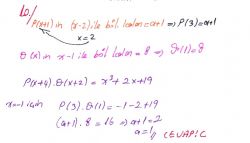 P(x+1) in (x-2) ile böl. kalan = a+1 ⇒ P(3) = a+1
x=2
Q(x) in x-1 ile böl. kalan = 8 ⇒ Q(1) = 8
P(x+4) . Q(x+2) = x³ + 2x + 19
x=-1 için P(3) . Q(1) = -1 - 2 + 19
(a+1) . 8 = 16 ⇒ a+1 = 2
a = 1 // CEVAP C